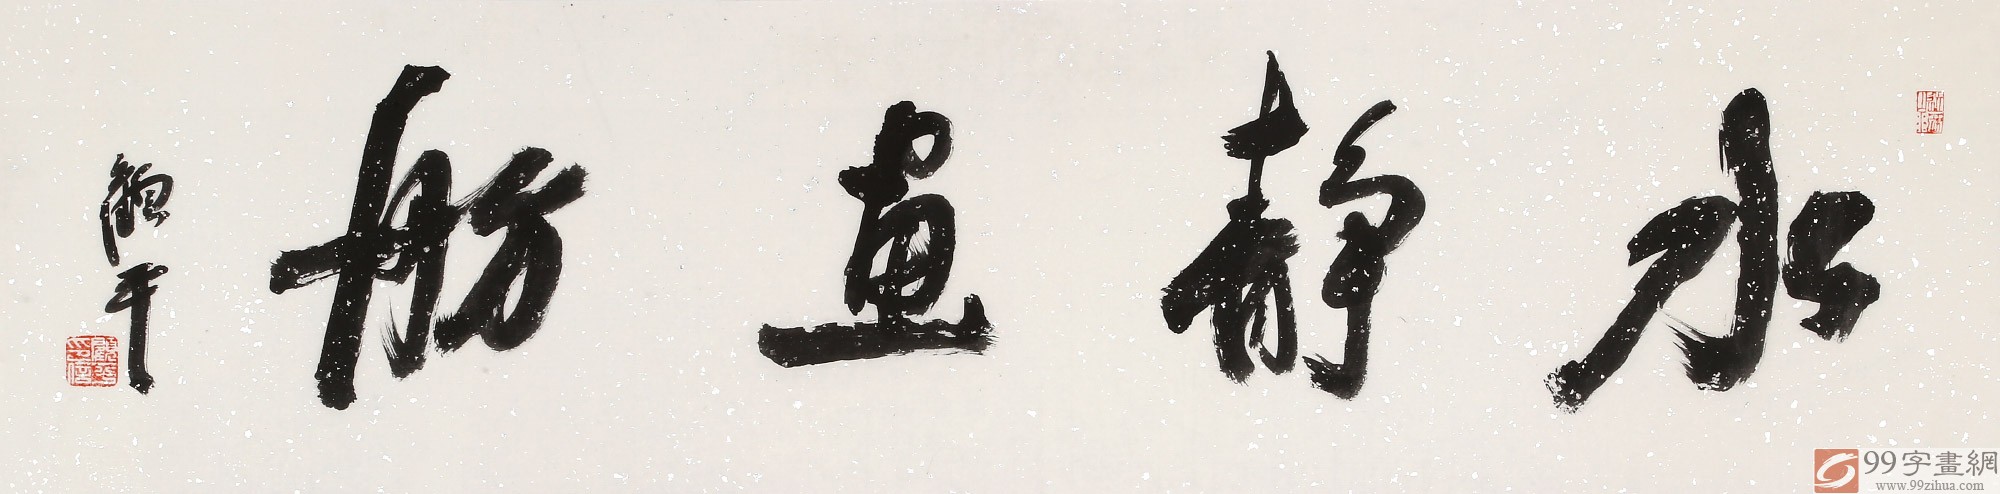 水静画舫
平
99字畫網
www.99zihua.com